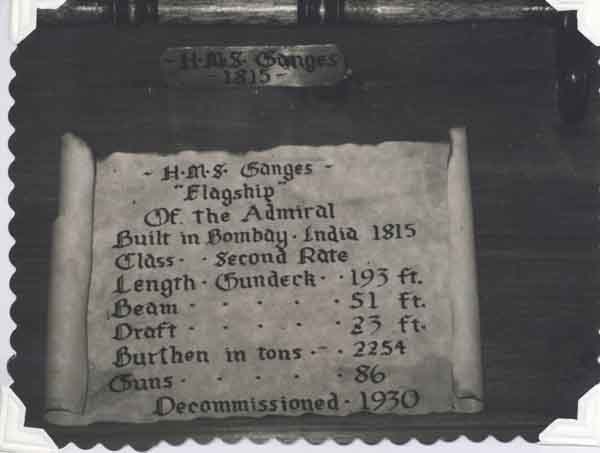 - H.M.S. Ganges
- 1815 -
- H.M.S. Ganges -
"Flagship"
Of the Admiral
Built in Bombay · India 1815
Class · · Second Rate
Length · Gundeck · · 193 ft.
Beam · · · · · 51 ft.
Draft · · · · · 23 ft.
Burthen in tons · - · 2254
Guns · · · · · 86
Decommissioned · 1930